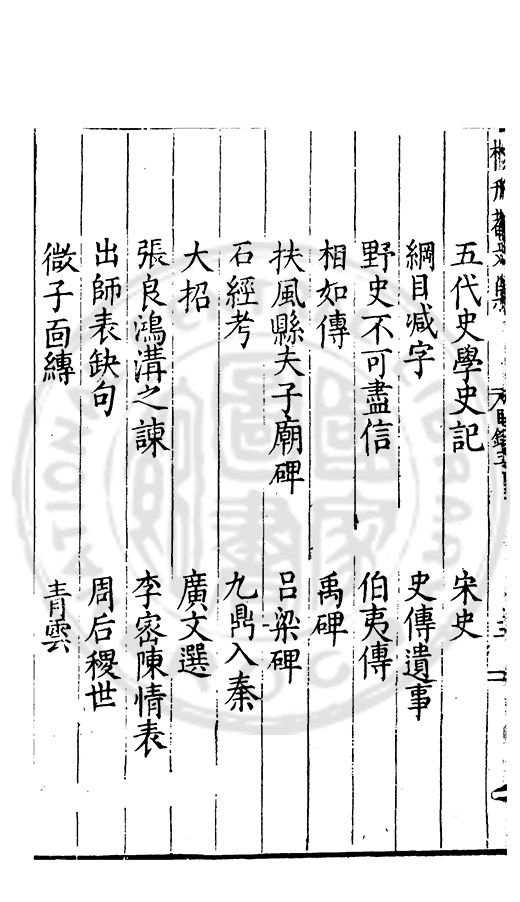 五代史學史記 宋史
綱目减字 史傳遺事
野史不可盡信 伯夷傳
相如傳 禹碑
扶風縣夫子廟碑 呂梁碑
石經考 九鼎入秦
大招 廣文選
張良鴻溝之諫 李密陳情表
出師表缺句 周后稷世
微子面縳 青雲